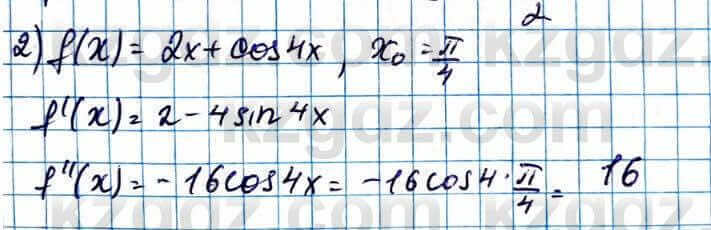 2
2) f(x) = 2x + cos4x, x₀ = π/4
f'(x) = 2 - 4sin4x
f''(x) = - 16cos4x = -16cos4·π/4 = 16
kzgdz.com